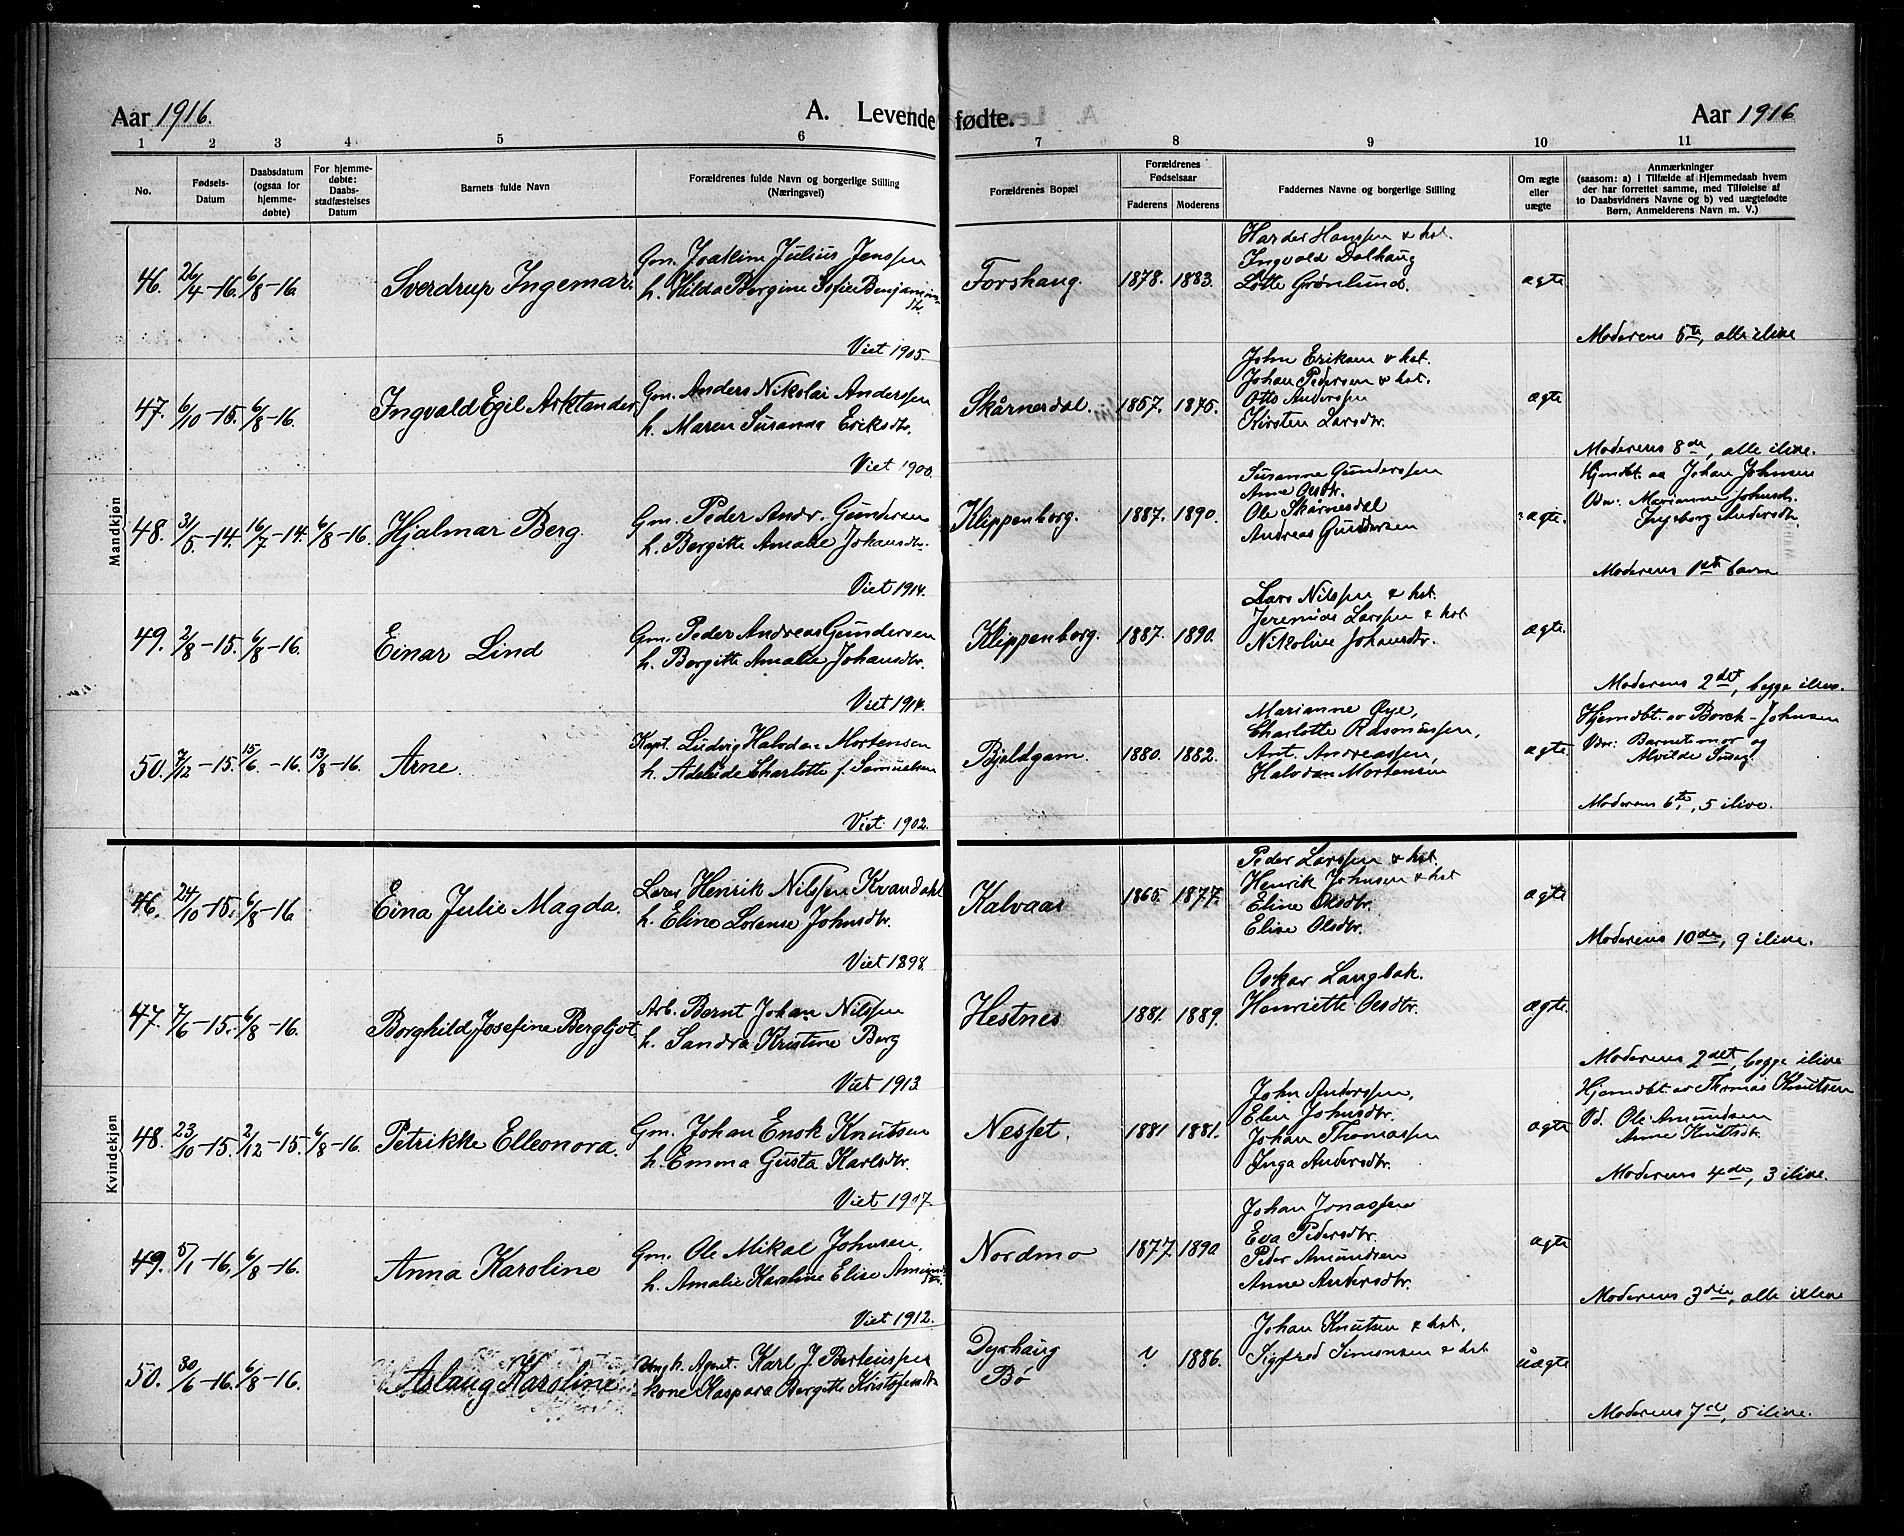 Aar 1916.
A. Levende fødte.
Aar 1916
1 2 3 4 5 6 7 8 9 10 11
No.
Fødsels-
Datum
Daabsdatum
(ogsaa for
hjemme-
døbte)
For hjemme-
døbte:
Daabs-
stadfæstelses
Datum
Barnets fulde Navn
Forældrenes fulde Navn og borgerlige Stilling
(Næringsvei)
Forældrenes Bopæl
Forældrenes
Fødselsaar
Faderens
Moderens
Faddernes Navne og borgerlige Stilling
Om ægte
eller
uægte
Anmærkninger
(saasom: a) i Tilfælde af Hjemmedaab hvem
der har forrettet samme, med Tilføielse af
to Daabsvidners Navne og b) ved uægtefødte
Børn, Anmelderens Navn m. V.)
Mandkjøn
46. 26/4-16. 6/8-16 Sverdrup Ingemar
Gm. Joakim Julius Jenssen
h. Hilda Bergine Sofie Benjaminsdtr.
Viet 1905.
Forshaug. 1878. 1883.
Harder Hanssen & hst.
Ingvald Dalhaug
Lotte Grønlund.
ægte
Moderens 5te, alle ilive
47. 6/10-15. 6/8-16. Ingvald Egil Arktander
Gm. Anders Nikolai Anderssen
h. Maren Susanna Eriksdtr.
Viet 1900.
Skårnesdal. 1857. 1875.
John Eriksen & hst.
Johan Pedersen & hst.
Otto Anderssen
Kirsten Larsdtr.
ægte
Moderens 8de, alle ilive.
48. 31/5-14. 16/7-14. 6/8-16. Hjalmar Berg.
Gm. Peder Andr. Gundersen
h. Bergitte Amalie Johansdtr.
Viet 1914.
Klippenborg. 1887. 1890.
Susanne Gunderssen
Anne Olsdtr.
Ole Skårnesdal
Andreas Gundersen
ægte.
Hjemdbt. av Johan Johnsen
Vdn: Marianne Johnsdtr.
Ingeborg Andersdtr.
Moderens 1ste barn
49. 2/8-15. 6/8-16. Einar Lind
Gm. Peder Andreas Gundersen
h. Bergitte Amalie Johansdtr.
Viet 1914.
Klippenborg. 1887. 1890.
Lars Nilssen & hst.
Jeremias Larssen & hst
Nikoline Johansdtr.
ægte.
Moderens 2det, begge ilive.
50. 7/12-15. 15/6-16. 13/8-16. Arne.
Kapt. Ludvig Halvdan Mortensen
h. Adelaide Charlotte f. Samuelsen
Viet 1902.
Bjeldgam. 1880. 1882.
Marianne Øye,
Charlotte Rasmussen,
Ant. Andreassen,
Halvdan Mortensen
ægte
Hjemdbt. av Borch-Johnsen
Vdn: Barnets mor og
Alvilde
Moderens 6te, 5 ilive.
Kvindekjøn
46. 24/10-15. 6/8-16 Eina Julie Magda.
Lærer Henrik Nilssen Kvandahl
h. Eline Lorense Johnsdtr.
Viet 1898.
Kalvaas 1865. 1877.
Peder Larssen & hst.
Henrik Johnsen & hst
Eline Olsdtr.
Elise Olsdtr.
ægte
Moderens 10de, 9 ilive.
47. 7/6-15. 6/8-16. Borghild Josefine Bergljot
Arb. Bernt Johan Nilssen
h. Sandra Kristine Berg
Viet 1913.
Hestnes 1881. 1889.
Oskar Langbak.
Henriette Olsdtr.
ægte.
Moderens 2det, begge ilive
48. 23/10-15. 2/12-15. 6/8-16. Petrikke Elleonora.
Gm. Johan Ensk Knutsen
h. Emma Gusta Karlsdtr.
Viet 1907.
Nesset. 1881 1881.
John Anderssen,
Elen Johnsdtr.
Johan Thomassen
Inga Andersdtr.
ægte
Hjemdbt. av Thomas Knutsen
Vd. Ole Amundsen
Anne Knutsdtr.
Moderens 4de, 3 ilive.
49. 5/1-16. 6/8-16. Anna Karoline
Gm. Ole Mikal Johnsen,
h. Amalie Karoline Elise Amundsdtr.
Viet 1912.
Nordmo 1877. 1890
Johan Jonassen
Eva Pedersdtr.
Peder Amundsen
Anne Andersdtr.
ægte
Moderens 3die, alle ilive
50. 30/6-16. 6/8-16. Aslaug Karoline
Ungk. Agent. Karl J. Berteussen
kone Kaspara Bergitte Kristofersdtr
Dyrhaug
Bø
? 1886.
Johan Knutsen & hst.
Sigfred Simonsen & hst
uægte
Moderens 7de, 5 ilive.